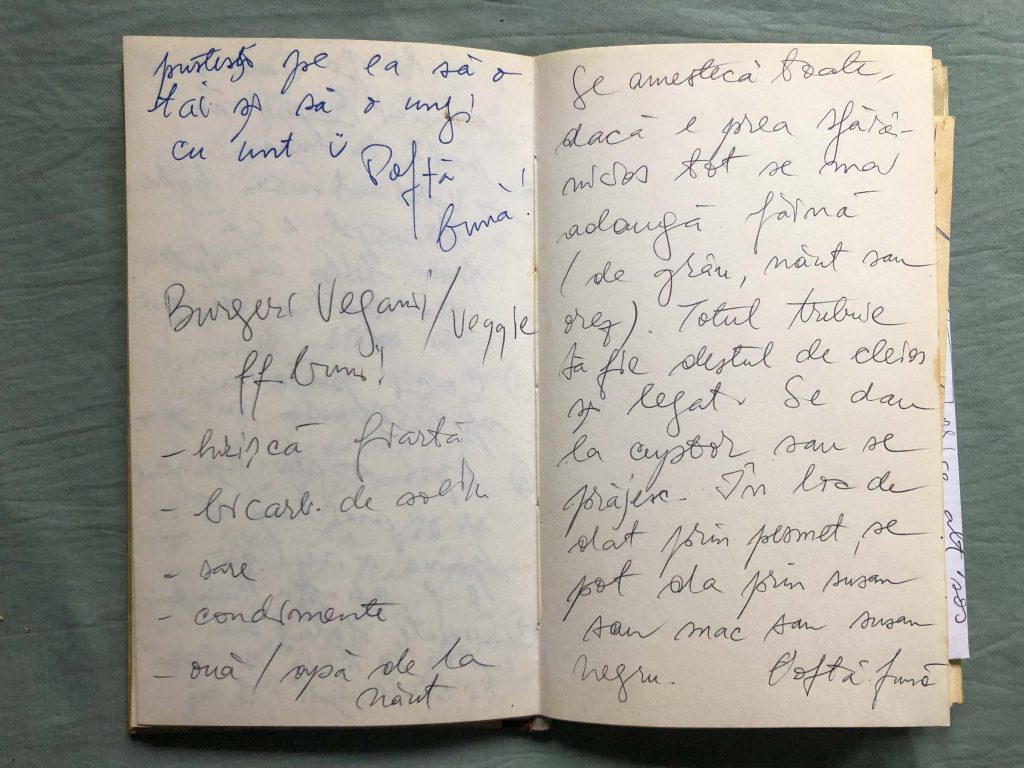 pe ea să o
tai și să o ungi
cu unt ü
Poftă
bună!
Burgeri Vegani/Veggie
ff buni!
- hrișcă fiartă
- bicarb. de sodiu
- sare
- condimente
- ouă / apă de la
năut
Se amestecă toate,
dacă e prea sfărâ-
micios tot se mai
adaugă făină
(de grâu, năut sau
orez). Totul trebuie
să fie destul de cleios
și legat. Se dau
la cuptor sau se
prăjesc. În loc de
dat prin pesmet, se
pot da prin susan
sau mac sau susan
negru. Poftă bună